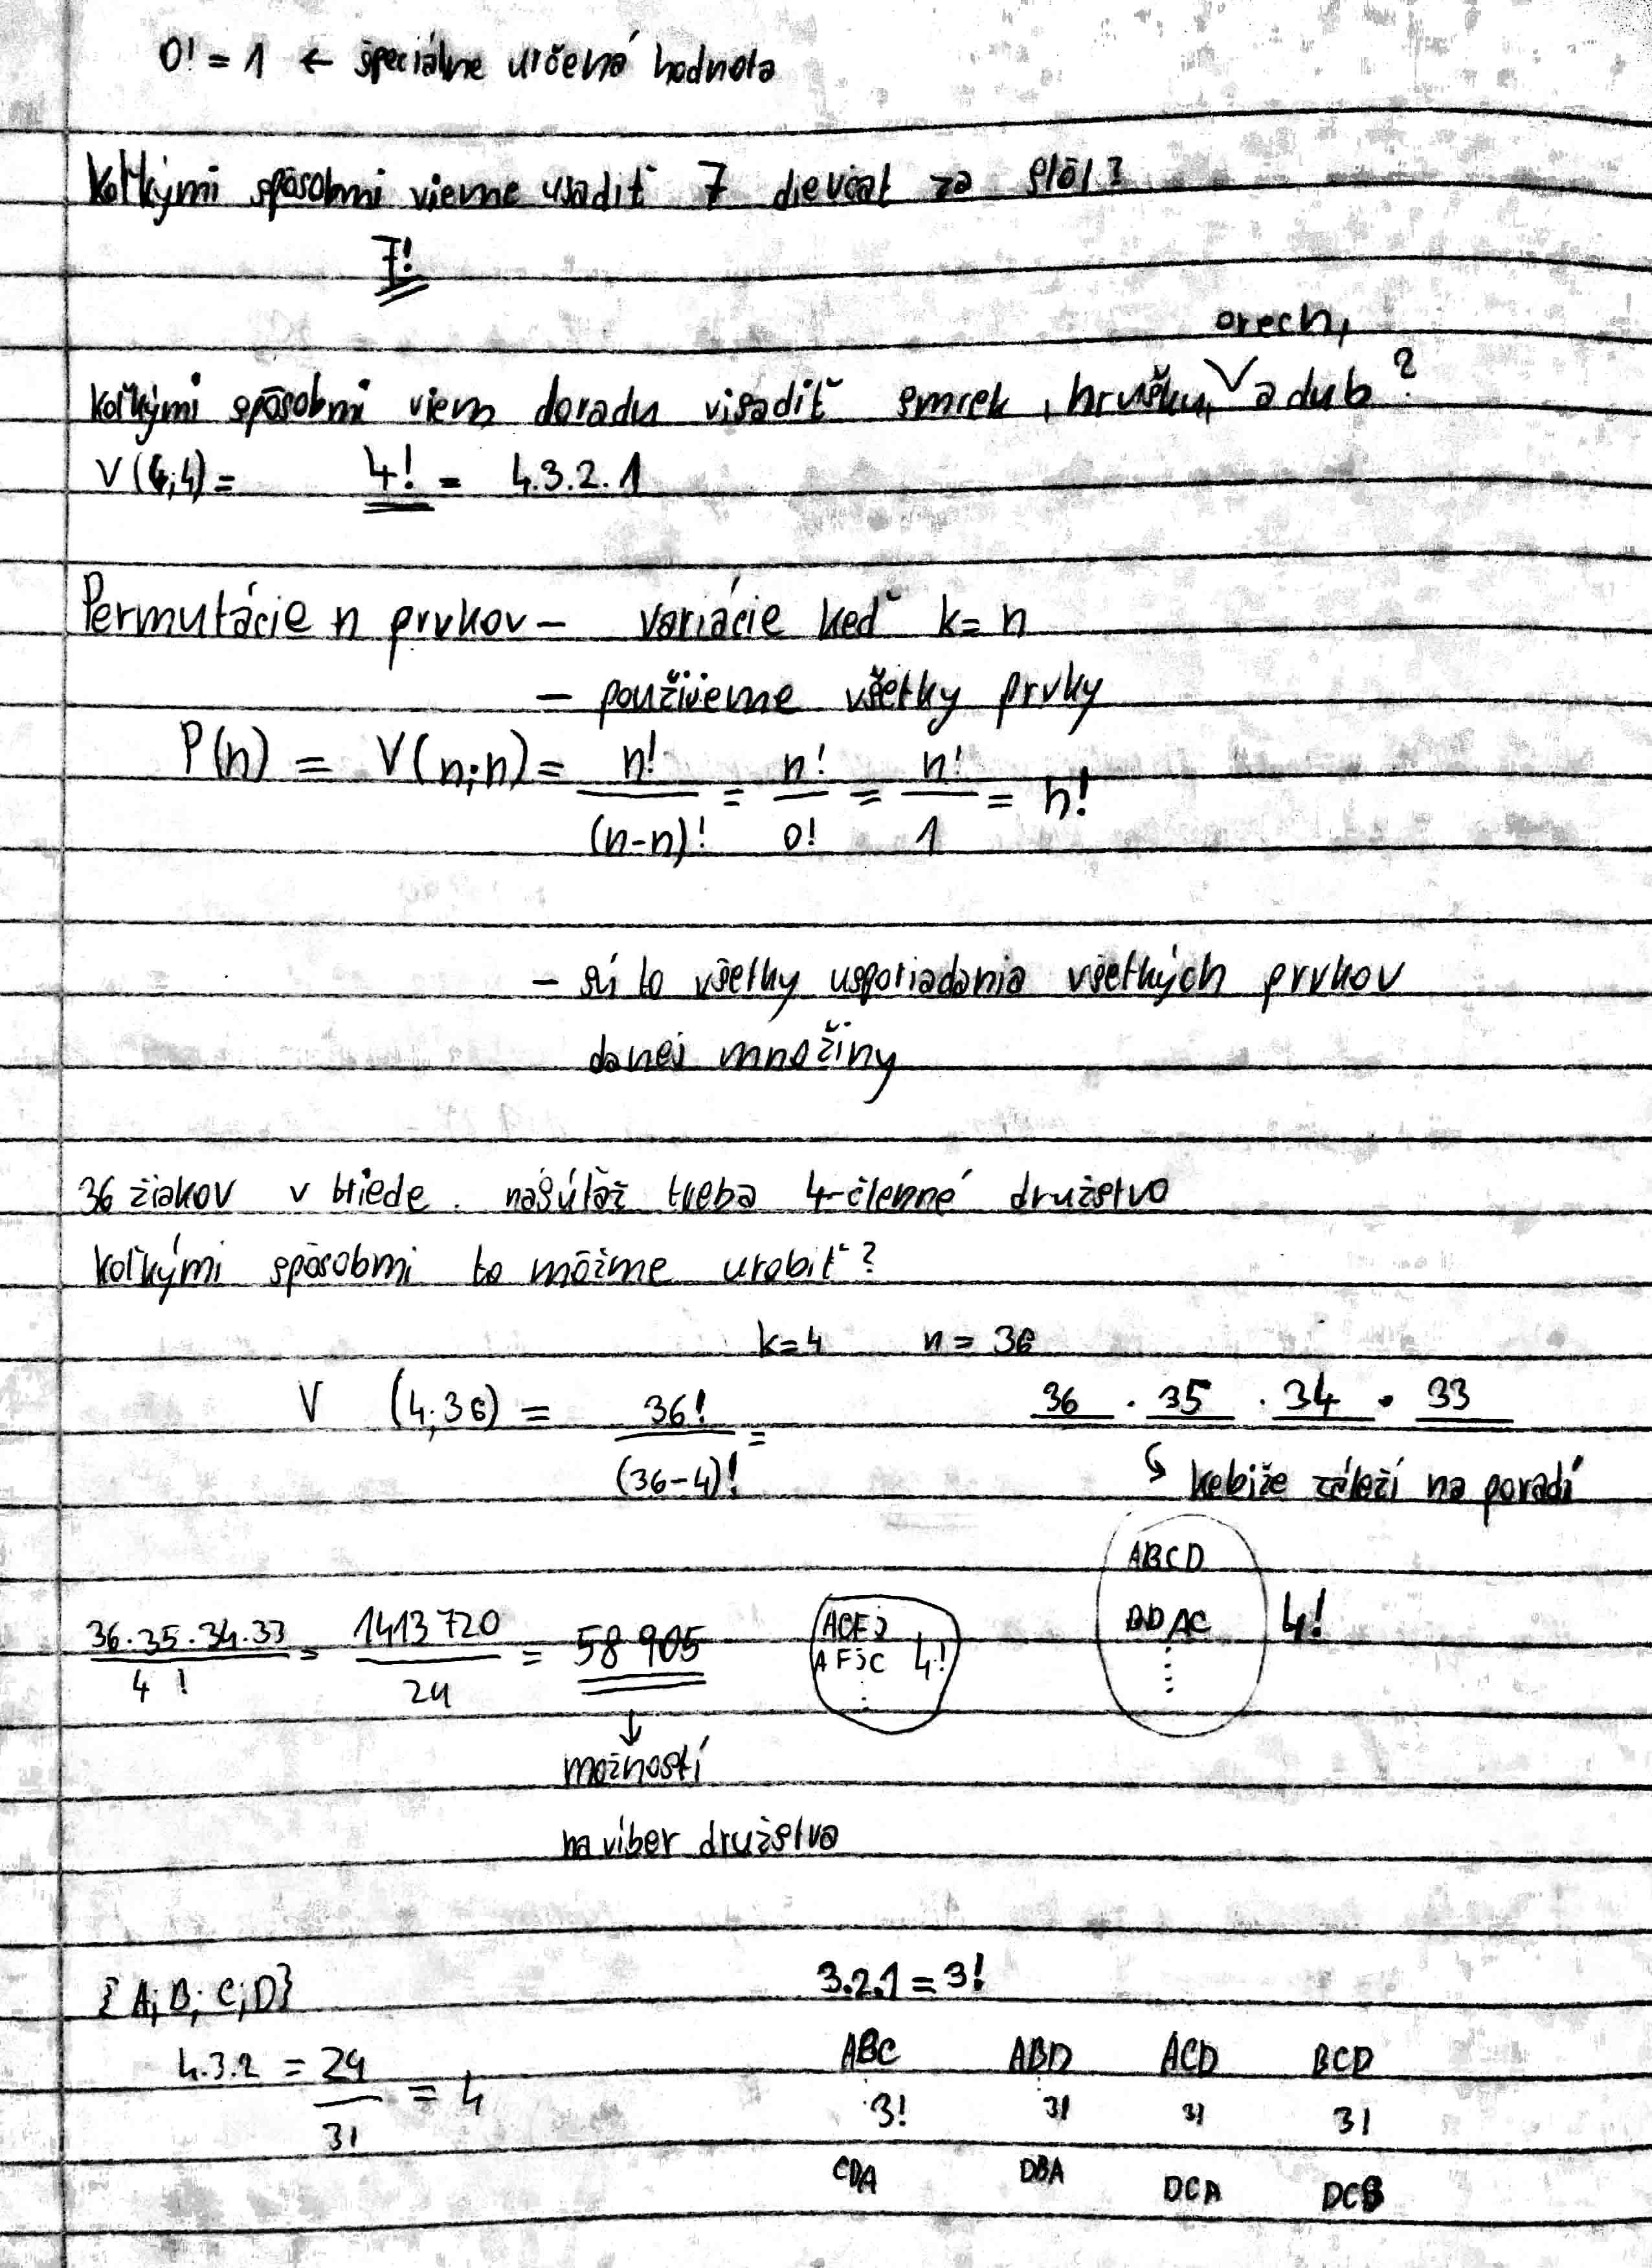 0! = 1 ← špeciálne určená hodnota
Koľkými spôsobmi vieme usadiť 7 dievčat za stôl?
7!
orech,
koľkými spôsobmi viem doradu visadiť smrek, hrušku, V a dub?
V(4;4) = 4! = 4.3.2.1
Permutácie n prvkov – variácie keď k = n
– použijeme všetky prvky
P(n) = V(n;n) = n!/(n-n)! = n!/0! = n!/1 = n!
– sú to všetky usporiadania všetkých prvkov
danej množiny
36 žiakov v triede. nasúťaž treba 4-členné družstvo
koľkými spôsobmi to môžme urobiť?
k=4 n = 36
V (4;36) = 36!/(36-4)! = 36 . 35 . 34 . 33
↳ kebiže záleží na poradí
ABCD
36.35.34.33/4! = 1413720/24 = 58 905 4! BDAC 4!
↓
možností
na víber družstva
{A;B;C;D} 3.2.1 = 3!
4.3.2 = 24/3! = 4 ABC ABD ACD BCD
3! 3! 3! 3!
CDA DBA DCA DCB